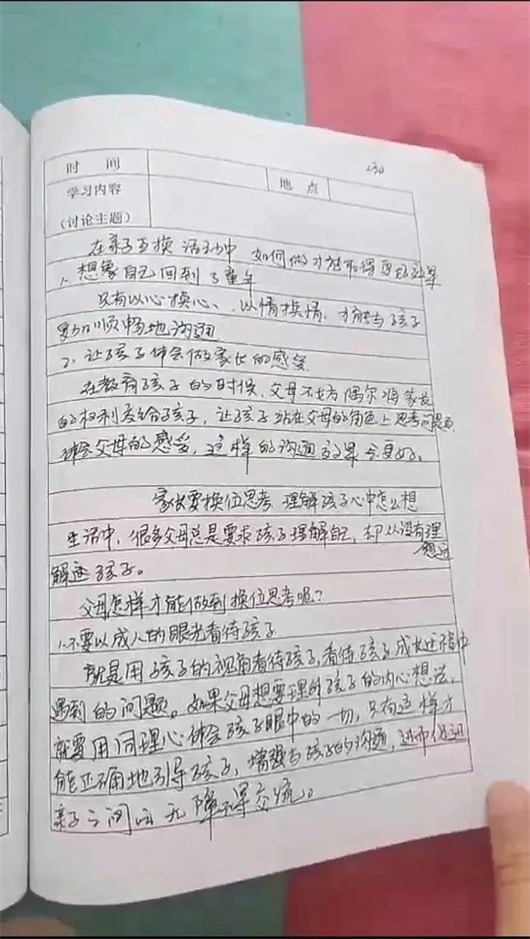 时 间
230
学习内容 地 点
(讨论主题)
在亲子互换活动中 如何做才能取得更好效果
1. 想象自己回到了童年
只有以心换心、以情换情,才能与孩子
更加顺畅地沟通
2. 让孩子体会做家长的感受
在教育孩子的时候,父母不妨偶尔将家长
的权利交给孩子,让孩子站在父母的角色上思考问题
体会父母的感受,这样的沟通效果会更好。
家长要换位思考 理解孩子心中怎么想
生活中,很多父母总是要求孩子理解自己,却从没有理
解过孩子。
父母怎样才能做到换位思考呢?
1.不要以成人的眼光看待孩子
就是用孩子的视角看待孩子,看待孩子成长过程中
遇到的问题。如果父母想要理解孩子的内心想法,
就要用同理心体会孩子眼中的一切,只有这样才
能正确地引导孩子,增强与孩子的沟通,进而促进
亲子之间的无障碍交流。